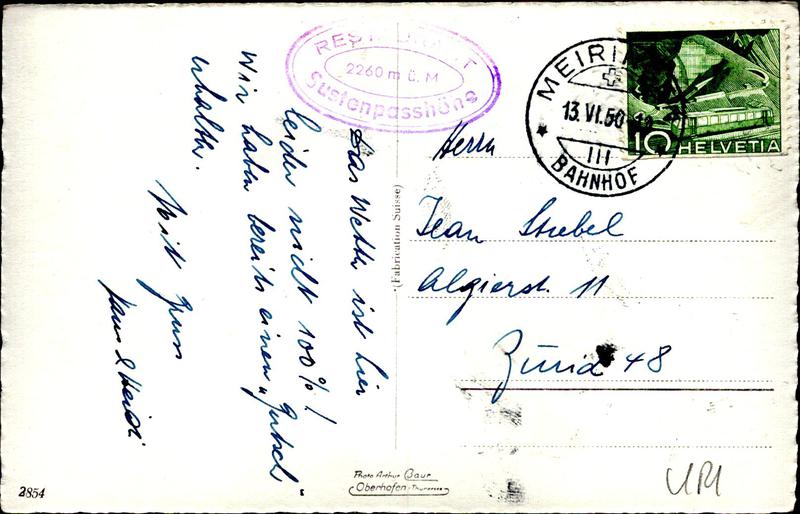 RESTAURANT
2260 m ü. M
Sustenpasshöhe
MEIRINGEN
13.VI.50
III
BAHNHOF
10 HELVETIA
Das Wetter ist hier
leider nicht 100%!
Wir haben bereits einen „Gutsch"
erhalten.
Mit Gruss
Hans & Heidi
(Fabrication Suisse)
Herrn
Jean Striebel
Algierst. 11
Zürich 48
Photo Arthur Baur
Oberhofen-Thunersee
2854
URI